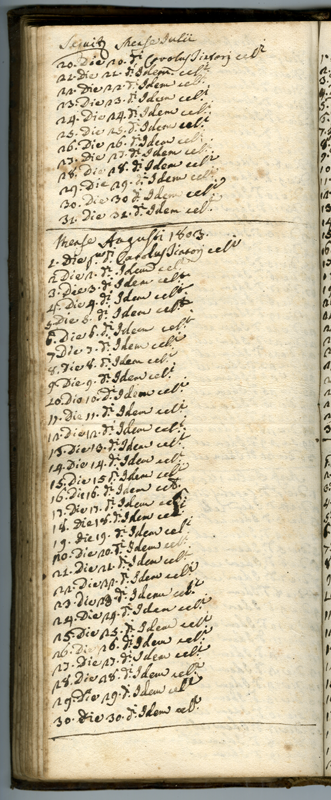 Sequitr Mense Julii
20. Die 20. di Carolus celt
21. Die 21. di Idem celt
22. Die 22. di Idem celt
23. Die 23. di Idem celt
24. Die 24. di Idem celt
25. Die 25. di Idem celt
26. Die 26. di Idem celt
27. Die 27. di Idem celt
28. Die 28. di Idem celt
29. Die 29. di Idem celt
30. Die 30 di Idem celt
31. Die 31. di Idem celt
Mense Augusti 1803.
1. Die pma di Carolus celt
2 Die 2. di Idem celt
3. Die 3. di Idem celt
4. Die 4. di Idem celt
5 Die 5. di Idem celt
6. Die 6. di Idem celt
7 Die 7. di Idem celt
8. Die 8. di Idem celt
9 Die 9. di Idem celt
10. Die 10. di Idem celt
11. Die 11. di Idem celt
12. Die 12. di Idem celt
13. Die 13. di Idem celt
14. Die 14. di Idem celt
15. Die 15. di Idem celt
16. Die 16. di Idem celt
17. Die 17. di Idem celt
18. Die 18. di Idem celt
19. Die 19. di Idem celt
20. Die 20. di Idem celt
21. Die 21. di Idem celt
22. Die 22. di Idem celt
23 Die 23 di Idem celt
24. Die 24. di Idem celt
25. Die 25. di Idem celt
26. Die 26. di Idem celt
27. Die 27. di Idem celt
28. Die 28. di Idem celt
29. Die 29. di Idem celt
30. Die 30. di Idem celt